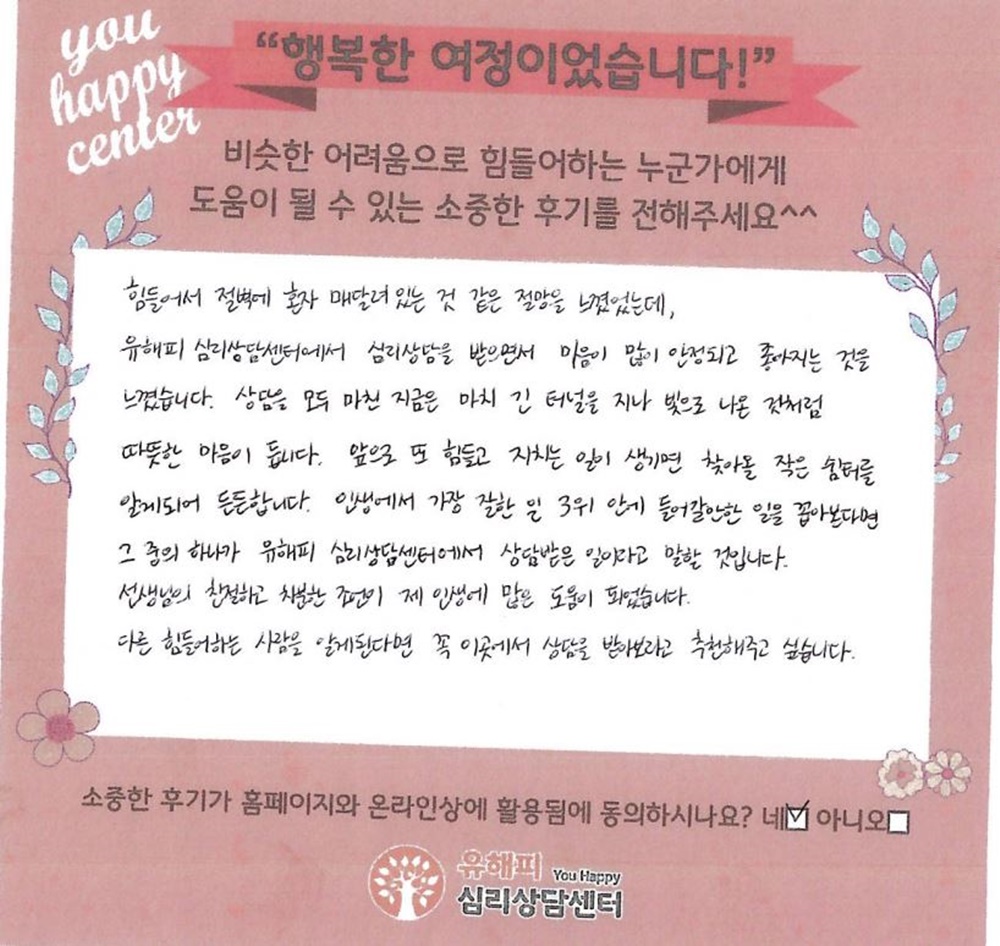 you
happy
center
“행복한 여정이었습니다!”
비슷한 어려움으로 힘들어하는 누군가에게
도움이 될 수 있는 소중한 후기를 전해주세요^^
힘들어서 절벽에 혼자 매달려 있는 것 같은 절망을 느꼈었는데,
유해피 심리상담센터에서 심리상담을 받으면서 마음이 많이 안정되고 좋아지는 것을
느꼈습니다. 상담을 모두 마친 지금은 마치 긴 터널을 지나 빛으로 나온 것처럼
따뜻한 마음이 듭니다. 앞으로 또 힘들고 지치는 일이 생기면 찾아올 작은 쉼터를
알게되어 든든합니다. 인생에서 가장 잘한 일 3위 안에 들어갈만한 일을 꼽아본다면
그 중의 하나가 유해피 심리상담센터에서 상담받은 일이라고 말할 것입니다.
선생님의 친절하고 차분한 조언이 제 인생에 많은 도움이 되었습니다.
다른 힘들어하는 사람을 알게된다면 꼭 이곳에서 상담을 받아보라고 추천해주고 싶습니다.
소중한 후기가 홈페이지와 온라인상에 활용됨에 동의하시나요? 네☑ 아니오☐
유해피 You Happy
심리상담센터